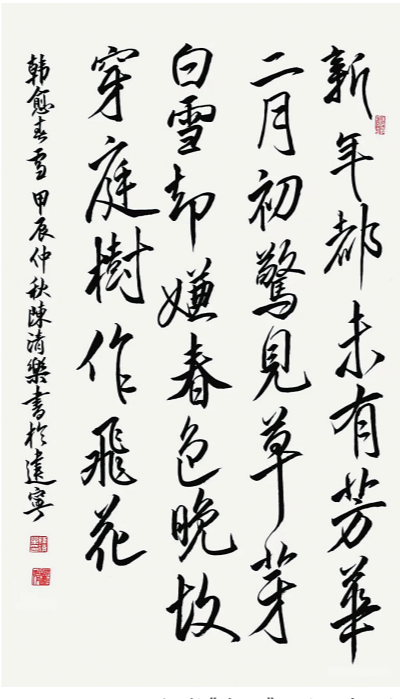 新年都未有芳華
二月初驚見草芽
白雪却嫌春色晚故
穿庭樹作飛花
韓愈春雪 甲辰仲秋陳清樂書於寧